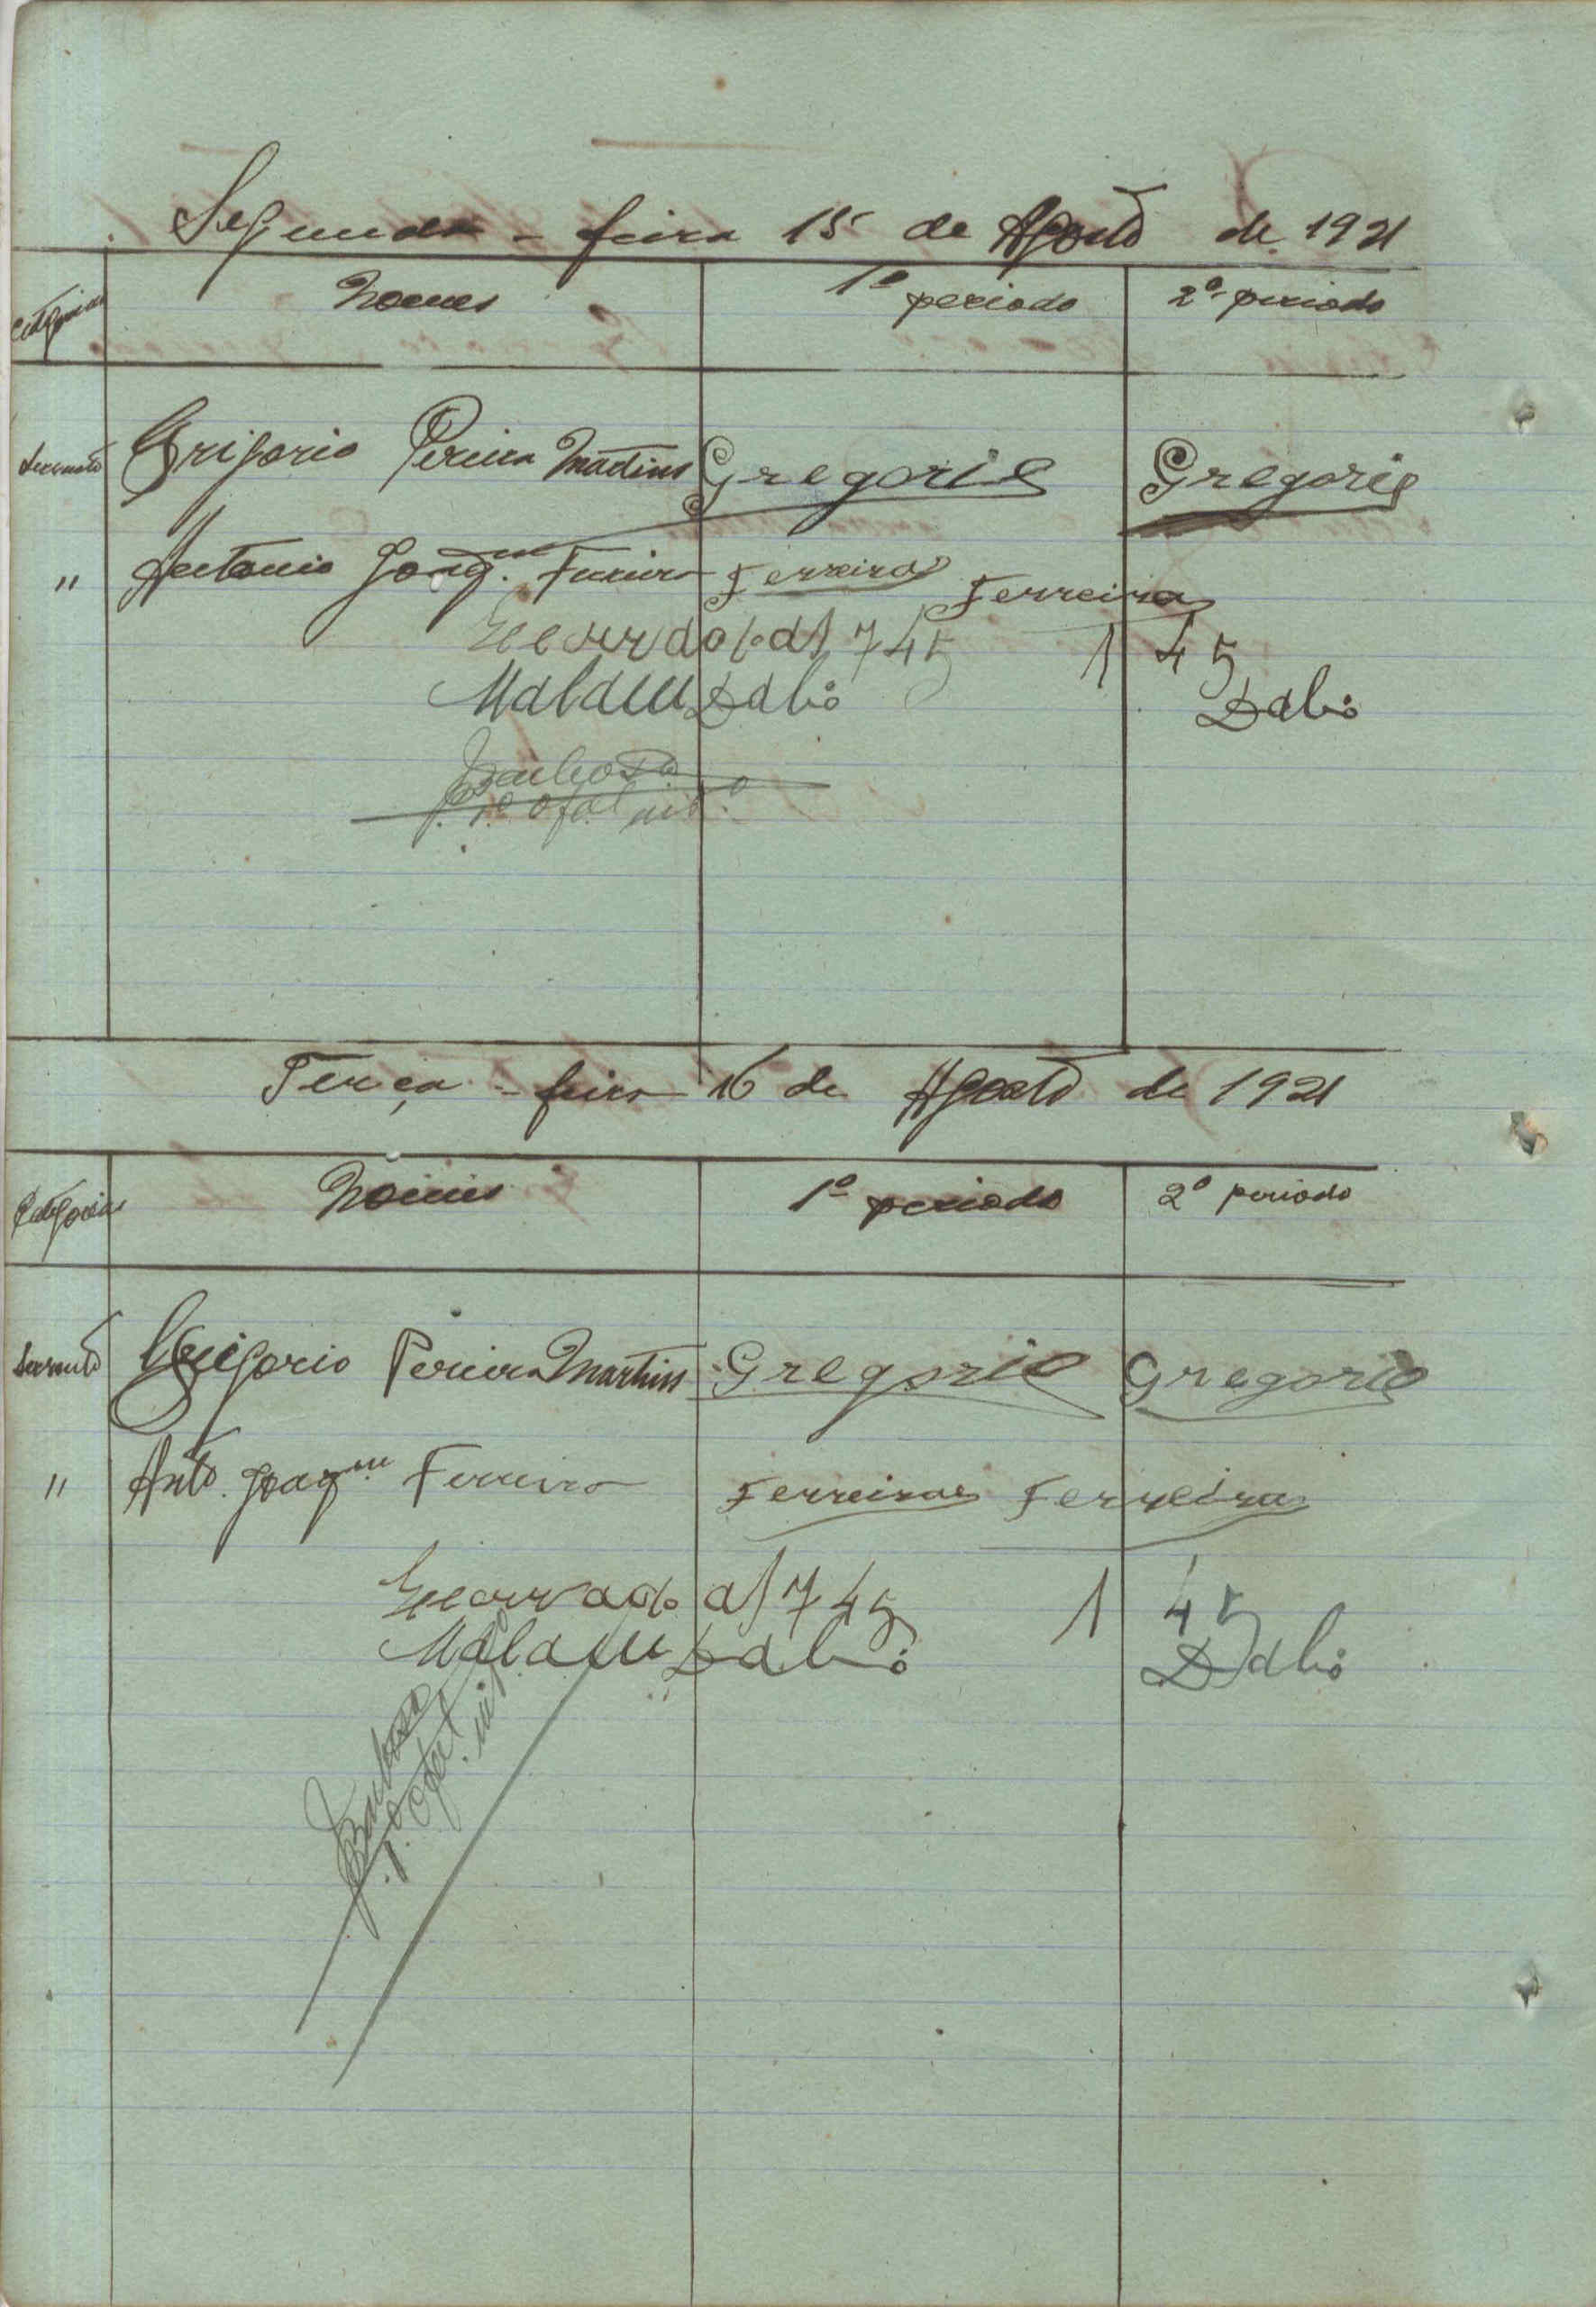 Segunda - feira 15 de Agosto de 1921
Categorias Nomes 1º periodo 2º periodo
Servente Grigorio Pereira Martins Gregorio Gregorio
" Antonio Joaqm. Ferreira Ferreira Ferreira
745 1 45
Malam Dabó Dabó
Barbosa
1º ofal intº
Terça - feira 16 de Agosto de 1921
Categorias Nomes 1º periodo 2º periodo
Servente Grigorio Pereira Martins Gregorio Gregorio
" Antº. Joaqm Ferreira Ferreira Ferreira
745 1 45
Malam Dabó Dabó
Barbosa